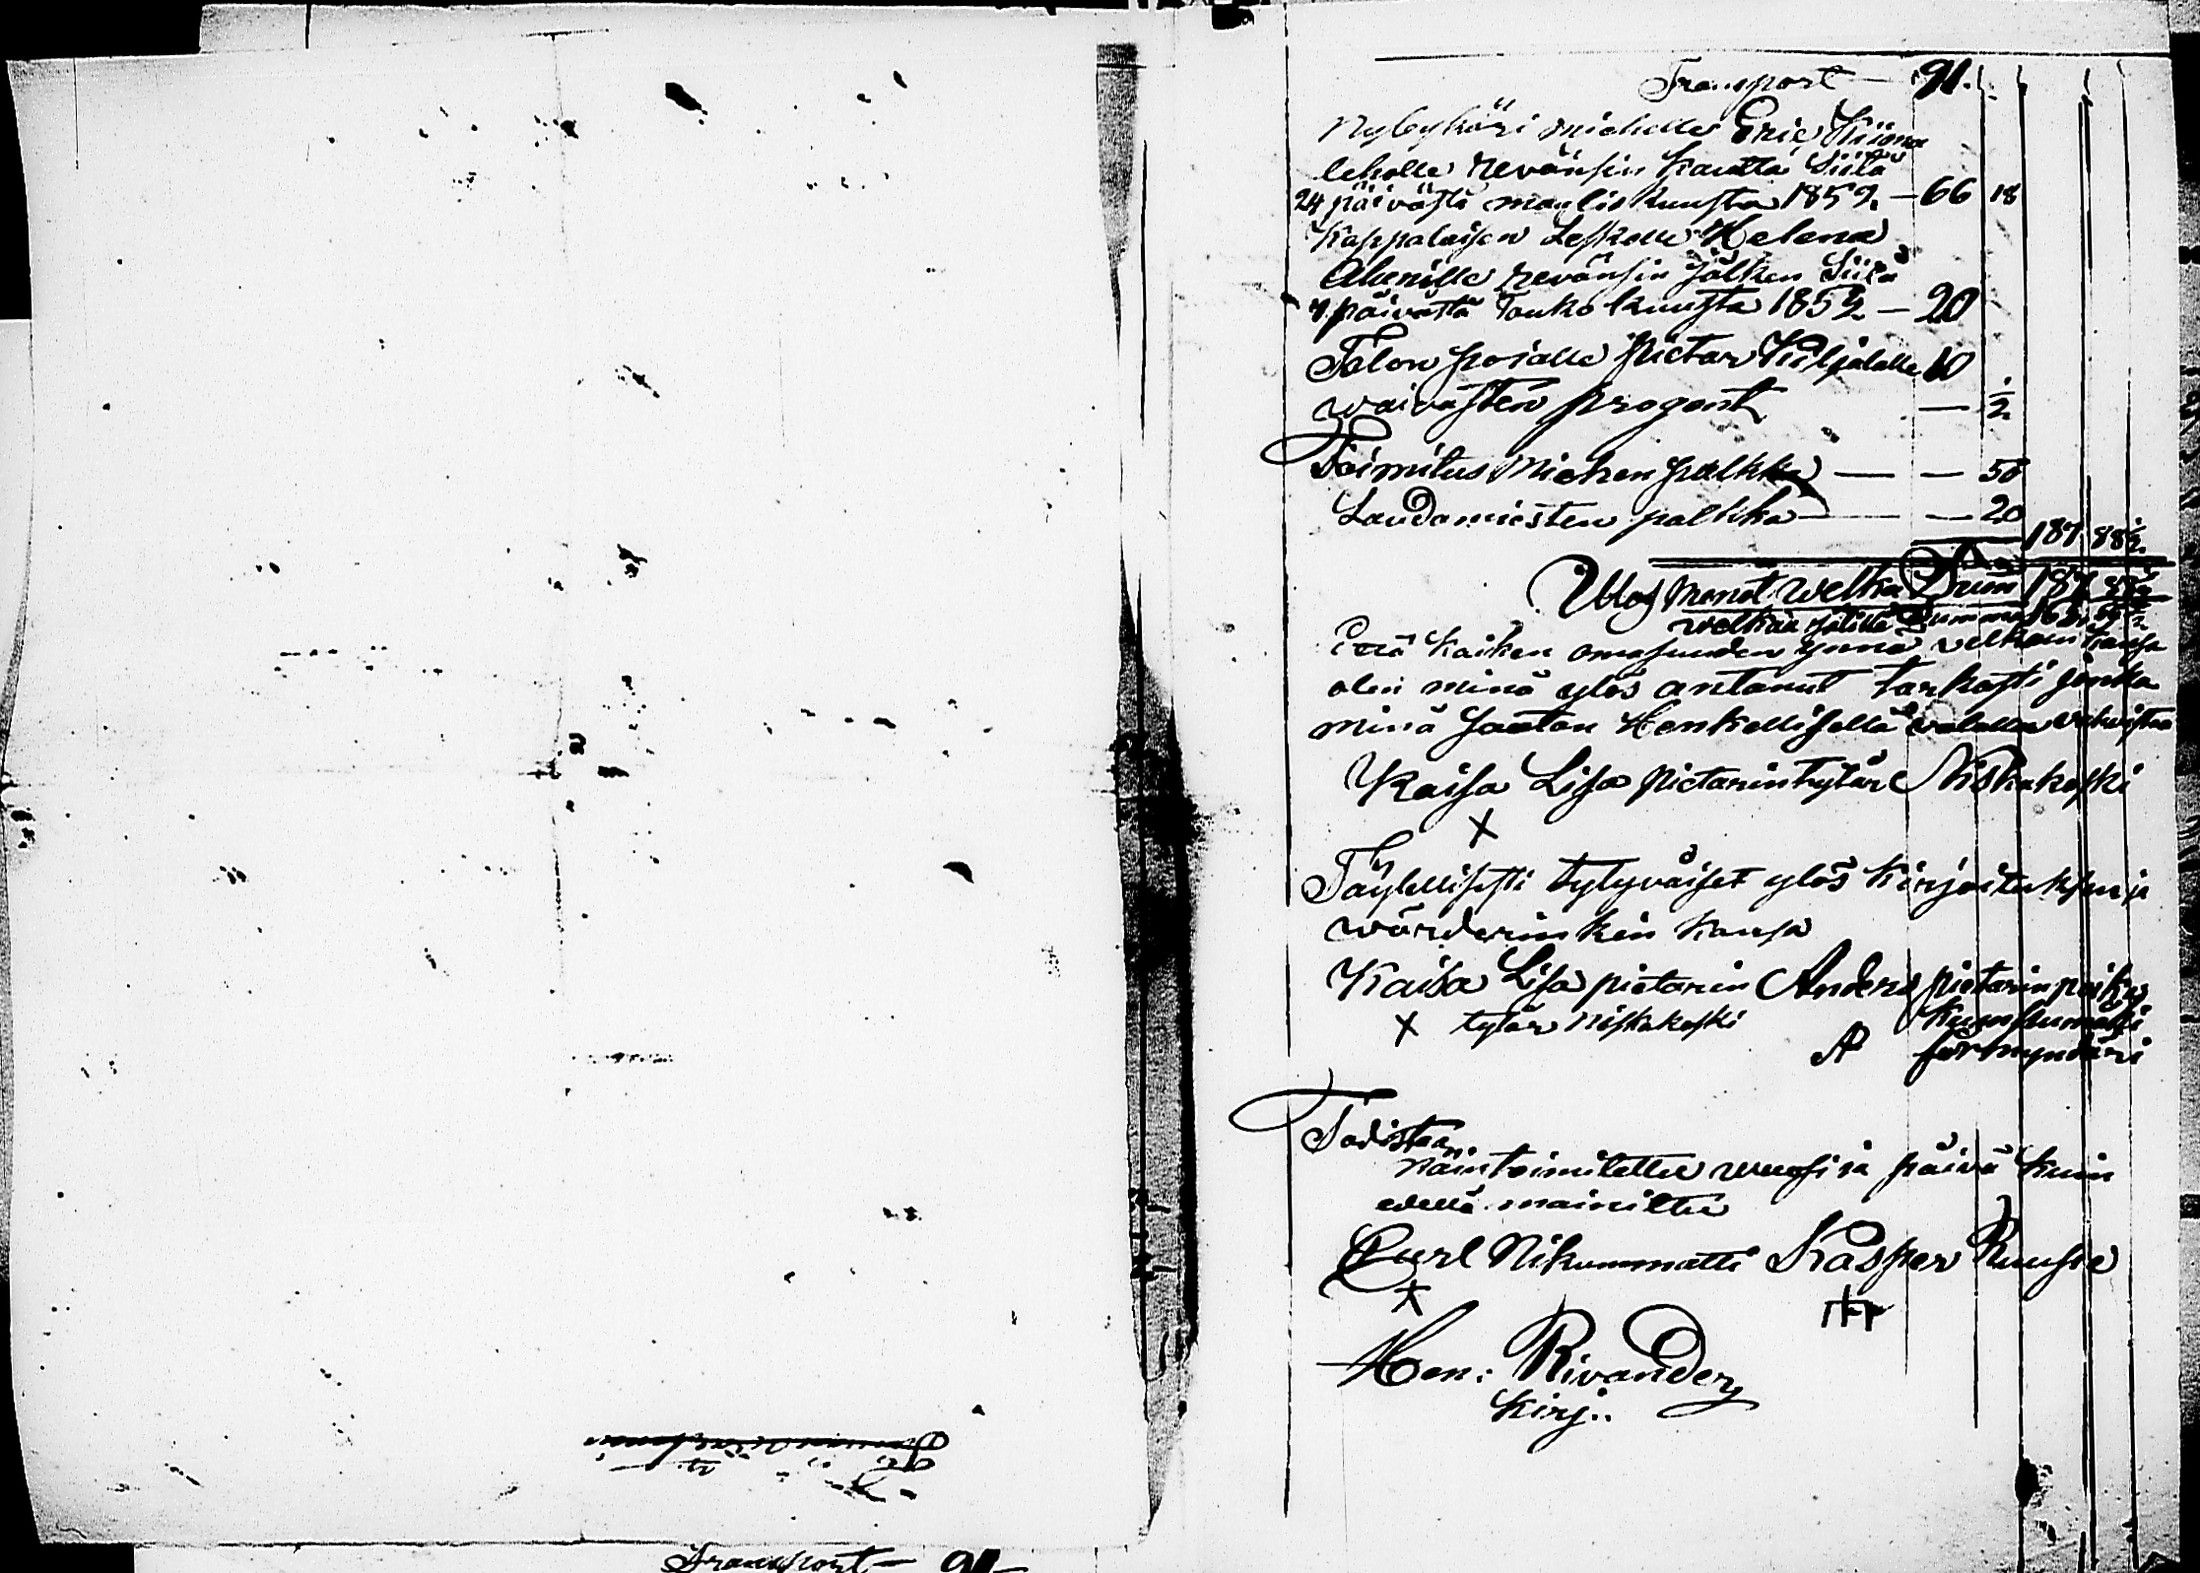 Transport — 91.
Nybyköri miehelle Eric Kiima
leholle revänsin kautta Siitä
24 päivästä maaliskuusta 1859. — 66 18
Kappalaisen Leskelle Helena
Aleenille revänsin jälken Siitä
7. päivästä Touko kuusta 1852 — 20
Talon pojalle Pietar Kiljalalle 10
waivasten progent — ½
Toimitus Miehen palkka — — 50
Laudamiesten palkka — — 20
187. 88½
Ulos menot welka Sum 187 88½
welkaa jälille Summa
Että kaiken omasuuden ynnä velkain kansa
olen minä ylös antanut tarkasti jonka
minä saatan Henkellisellä valalla vahvistaa
Kaisa Lisa Pietarintytär Niskakoski
X
Täylellisesti tytyväiset ylös kirjoituksen ja
wärderinkin kansa
Kaisa Lisa pietarin Anders pietarin poika
X tytär Niskakoski Kumpumäki
A förmyndäri
Todistaa
Näin toimitettu vuosi ja päivä kuin
edellä mainittu
Carl Nikunmatti Kasper Ruuska
X
Hen: Rivander
Kirj..
Transport — 91 —